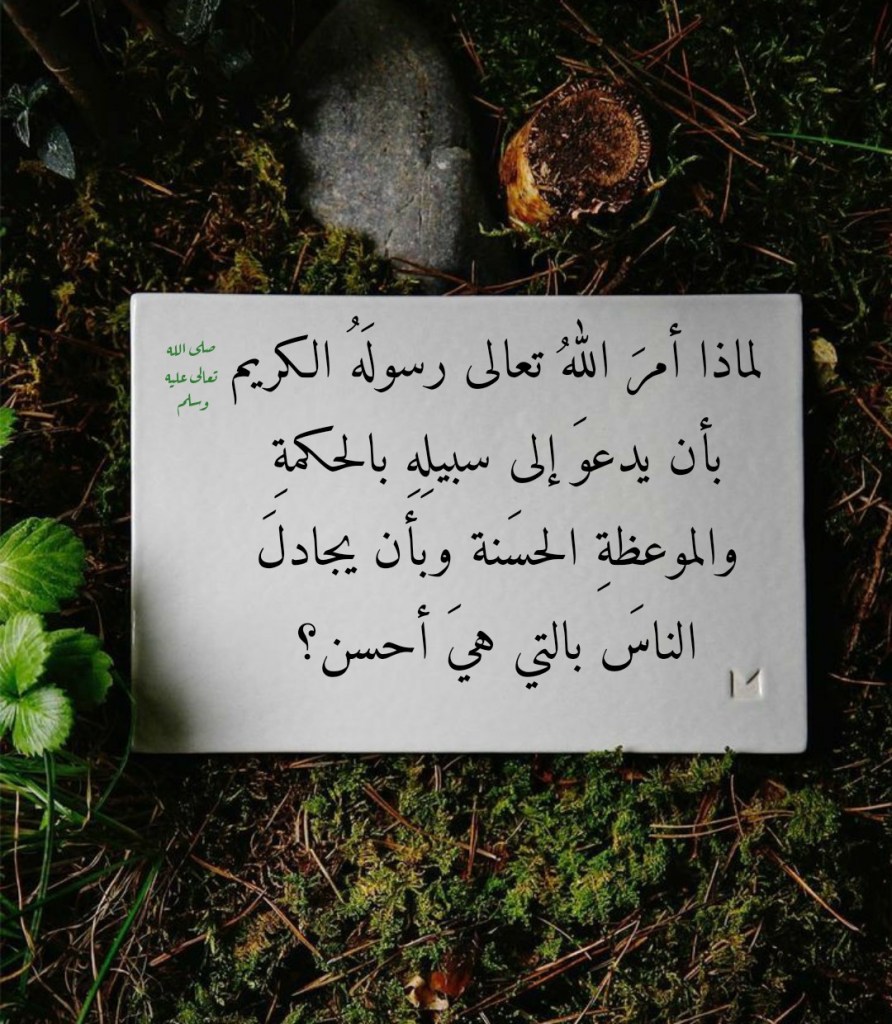 لماذا أمرَ اللهُ تعالى رسولَهُ الكريم
صلى الله
تعالى عليه
وسلم
بأن يدعوَ إلى سبيلِهِ بالحكمةِ
والموعظةِ الحسَنة وبأن يجادلَ
الناسَ بالتي هيَ أحسن؟